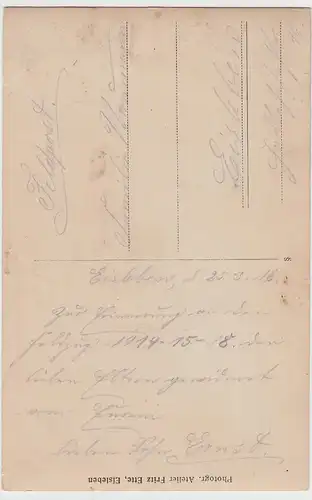 Feldpost.
Familie
Eisleben
Eisleben, d 25.3.16.
Zur Erinnerung an den
Feldzug 1914-15-18. den
lieben Eltern gewidmet
von
lieben Sohn Ernst.
Photogr. Atelier Fritz Ette, Eisleben